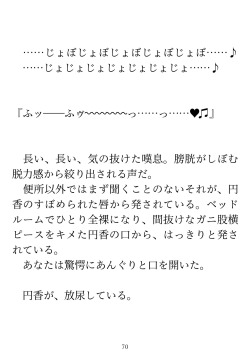 ……じょぼじょぼじょぼじょぼじょぼ……♪
……じょじょじょじょじょじょじょ……♪
『ふッ――ふゥ~~~~~~~~っ……っ……♥♫』
長い、長い、気の抜けた嘆息。膀胱がしぼむ
脱力感から絞り出される声だ。
便所以外ではまず聞くことのないそれが、円
香のすぼめられた唇から発されている。ベッド
ルームでひとり全裸になり、間抜けなガニ股横
ピースをキメた円香の口から、はっきりと発さ
れている。
あなたは驚愕にあんぐりと口を開いた。
円香が、放尿している。
70